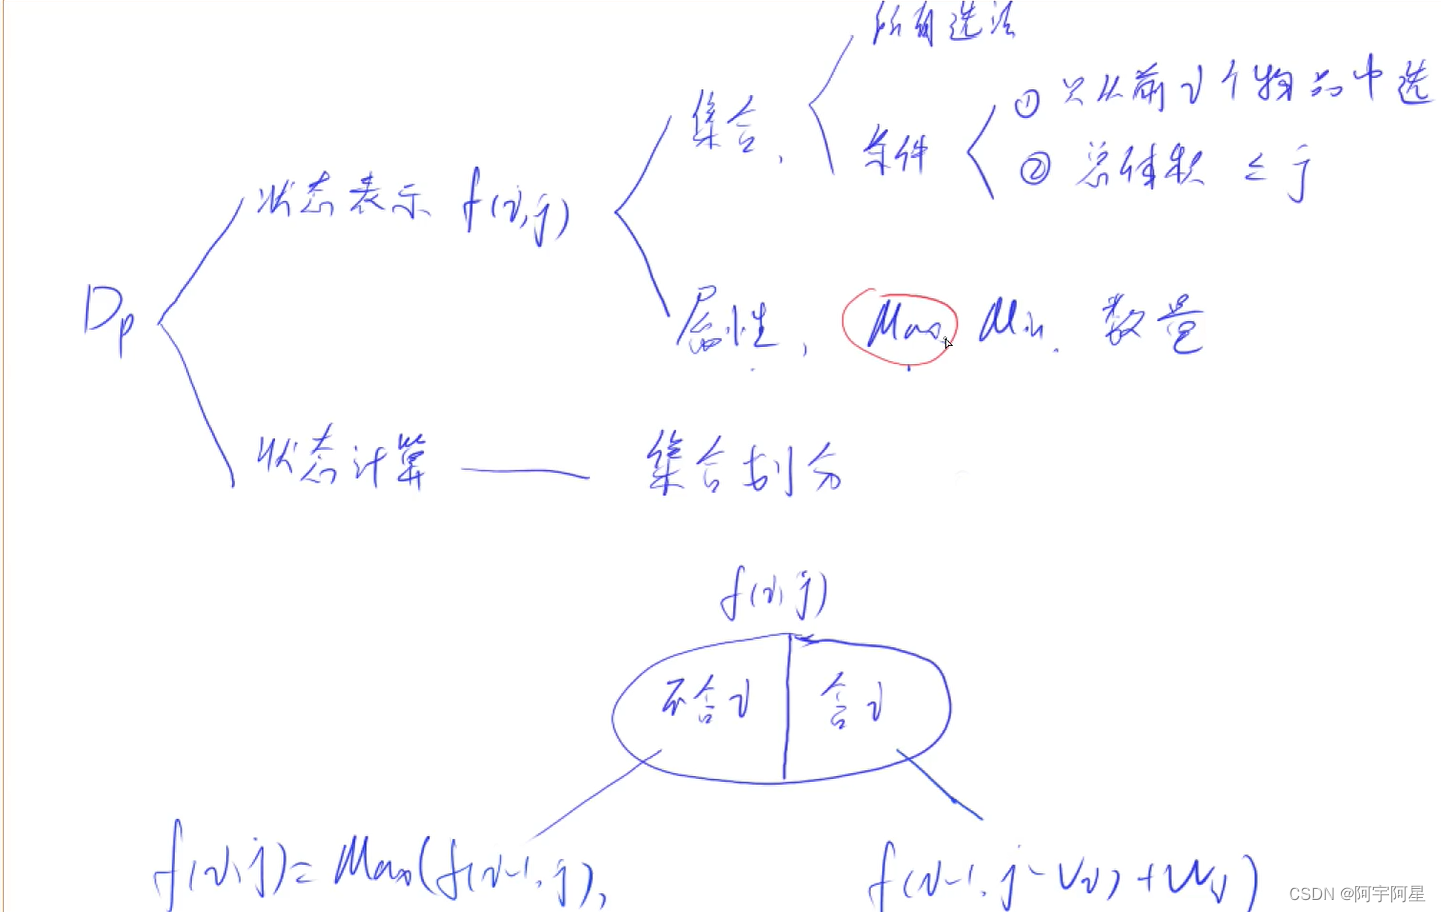 所有选法
集合，
条件
① 只从前i个物品中选
② 总体积 ≤ j
状态表示 f(i,j)
Dp
属性，Max, Min. 数量
状态计算 —— 集合划分
f(i,j)
不含i 含i
f(i,j)= Max(f(i-1,j), f(i-1,j-Vi)+Wi)
CSDN @阿宇阿星